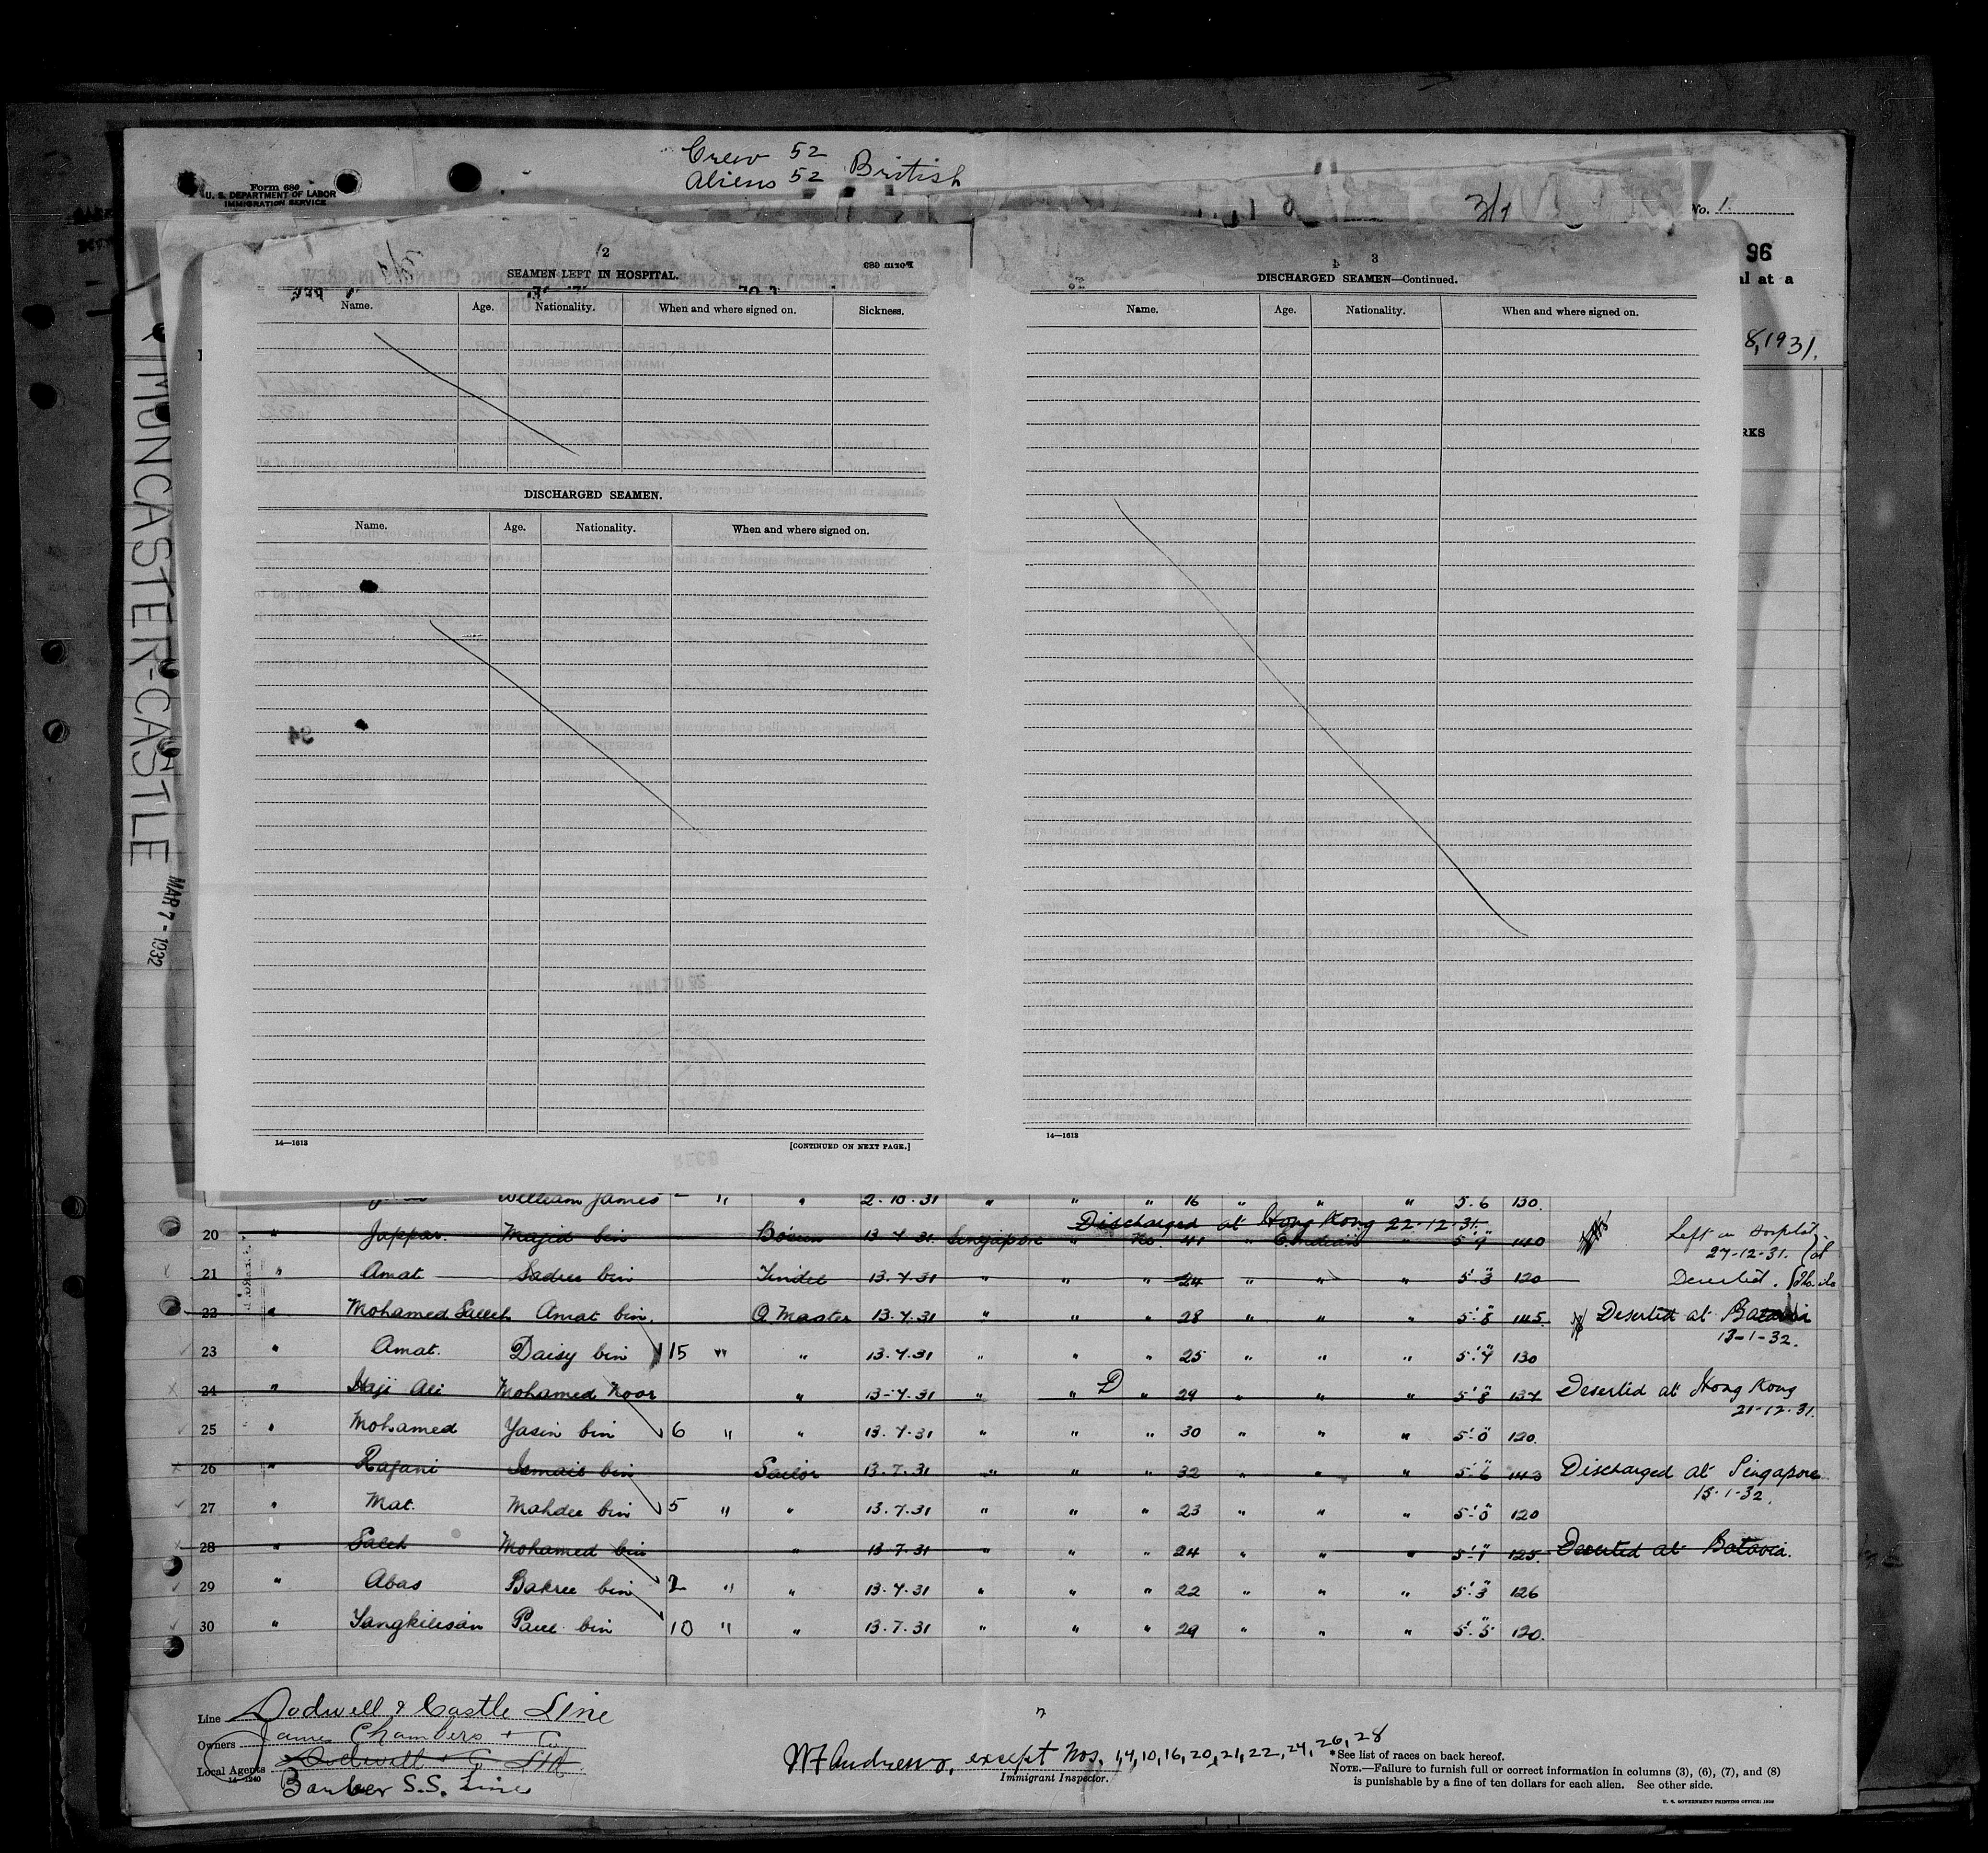 Crew 52
Aliens 52 British
Form 680
U. S. DEPARTMENT OF LABOR
IMMIGRATION SERVICE
3/1
No. 1.
96
al at a
8, 1931.
RKS
MONCASTER-CASTLE
MAR 7 - 1932
2
SEAMEN LEFT IN HOSPITAL.
Form 689
Name. Age. Nationality. When and where signed on. Sickness.
DISCHARGED SEAMEN.
Name. Age. Nationality. When and where signed on.
94
14—1613 [CONTINUED ON NEXT PAGE.]
3
DISCHARGED SEAMEN—Continued.
Name. Age. Nationality. When and where signed on.
14—1613
William James " " 2-10-31 " " " 16 " " " 5.6 130.
Discharged at Hong Kong 22-12-31.
20 " Jappar. Majid bin Bosun 13-7-31. Singapore " No. 41 " E.Indian " 5'4" 140 Left in Hospital
27-12-31. at
21 " Amat Sadree bin Tindel 13.7.31 " " " 24 " " " 5'.3" 120 Deserted.
22 " Mohamed Saleeh Amat bin. Q. Master 13.7.31 " " " 28 " " " 5'.8" 145. Deserted at Batavia
13-1-32.
23 " Amat. Daisy bin 15 " " 13.7.31 " " " 25 " " " 5'.4" 130
24 " Haji Ali Mohamed Noor " 13-7-31 " " D " 29 " " " 5'.8" 137 Deserted at Hong Kong
21-12-31.
25 " Mohamed Yasin bin 6 " " 13.7.31 " " " 30 " " " 5'.0" 120.
26 " Rajani Ismail bin Sailor 13.7.31 " " " 32 " " " 5'.6" 143 Discharged at Singapore
15-1-32.
27 " Mat. Mahdee bin 5 " " 13.7.31 " " " 23 " " " 5'.0" 120
28 " Saleh Mohamed bin " 13-7-31 " " " 24 " " " 5'.1" 125 Deserted at Batavia.
29 " Abas Bakree bin 2 " " 13.7.31 " " " 22 " " " 5'.3" 126
30 " Tangkilisan Paul bin 10 " " 13.7.31 " " " 29 " " " 5'.5" 120.
Line Dodwell & Castle Line
Owners James Chambers + Co
Local Agents Dodwell + Co Ltd.
14—1240
Barber S.S. Line
W F Andrews, except Nos. 1,4,10,16,20,21,22,24,26,28
Immigrant Inspector.
*See list of races on back hereof.
NOTE.—Failure to furnish full or correct information in columns (3), (6), (7), and (8)
is punishable by a fine of ten dollars for each alien. See other side.
U. S. GOVERNMENT PRINTING OFFICE: 1930